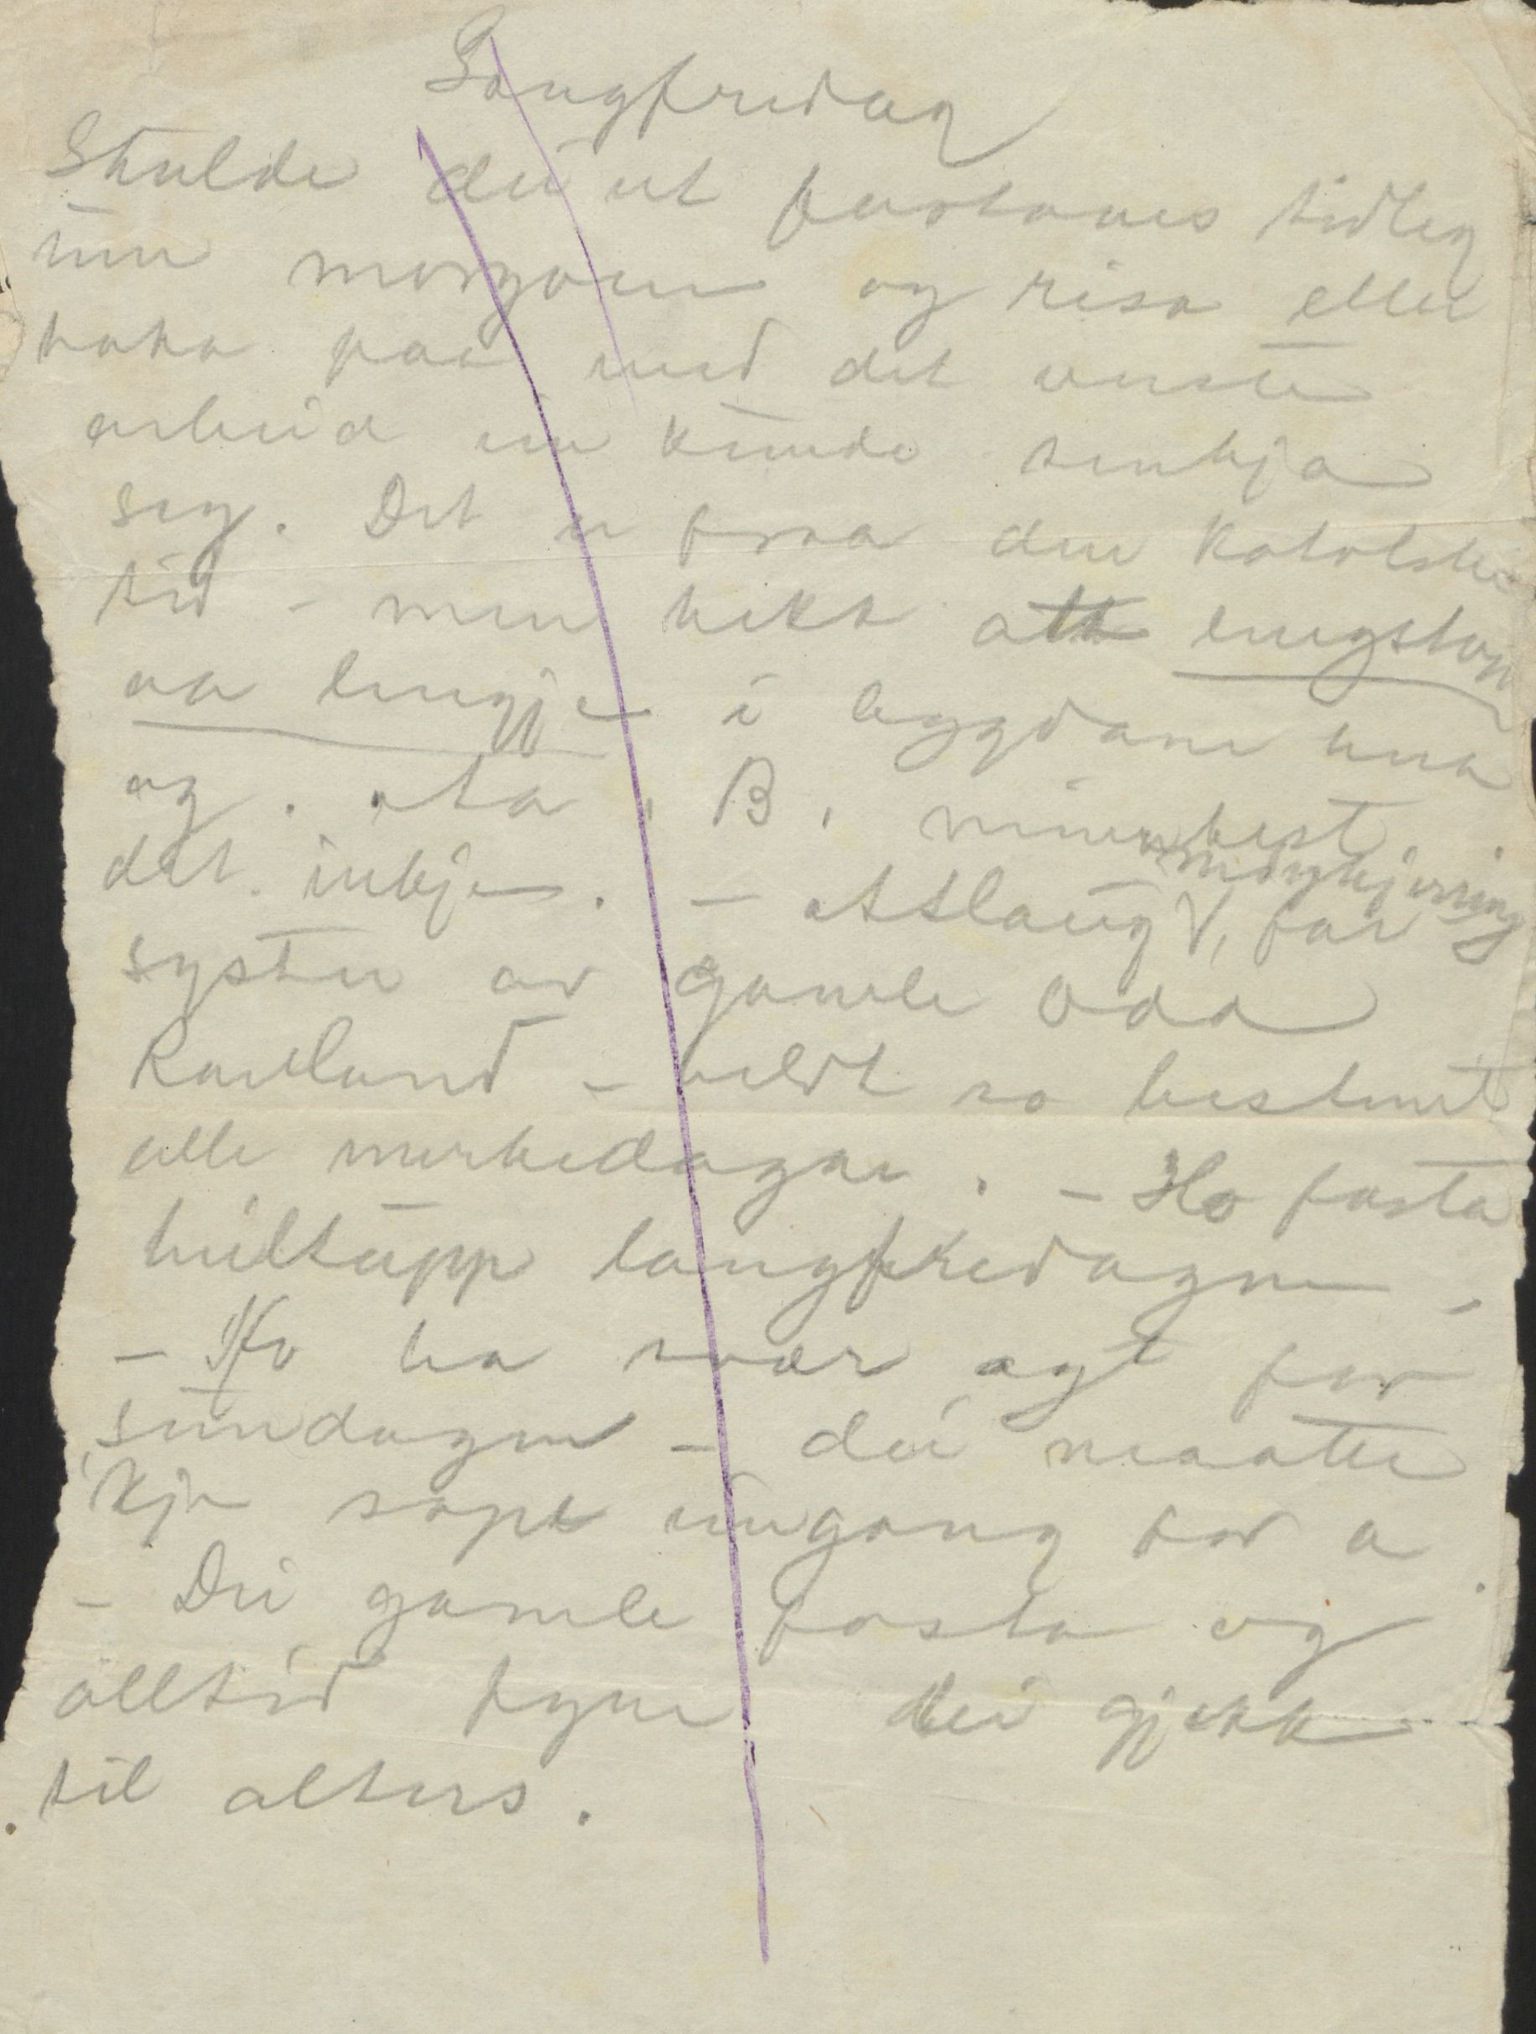 Langfredag
Skulde dei ut fastanes tidleg
um morgonen og risa eller
taka paa med det verste
arbeid ein kunde tenkja
seg. Det er fraa den katolske
tid – men hekk att lengst
aa lengje i bygdane her
og. B. minnest
det inkje. – Aslaug V, far
syster av gamle Oda
Rauland – heldt so bestemt
alle merkedagar. – Ho fasta
heiltupp langfredagen,
– Ho ha svær agt for
sundagen – dei maatte
'kje sope eingong for a.
– Dei gamle fasta og
alltid fyrr dei gjekk
til alters.